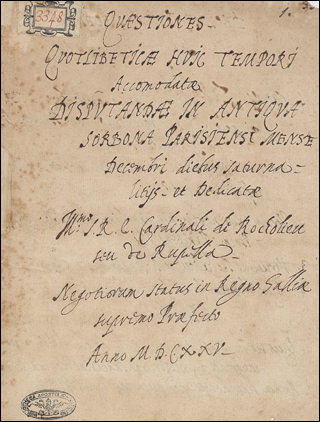 3348
1.
QUÆSTIONES
QUOTLIBETICÆ HUIC TEMPORI
Accomodatæ
DISPUTANDÆ IN ANTIQUA
SORBONA PARISIENSI MENSE
Decembri diebus saturna-
litijs et Dedicatæ
Illmo S. R. E. Cardinali de Rochelieu
seu de Rupella
Negotiorum status in Regno Galliæ
supremo Præfecto
Anno M.D.CXXV